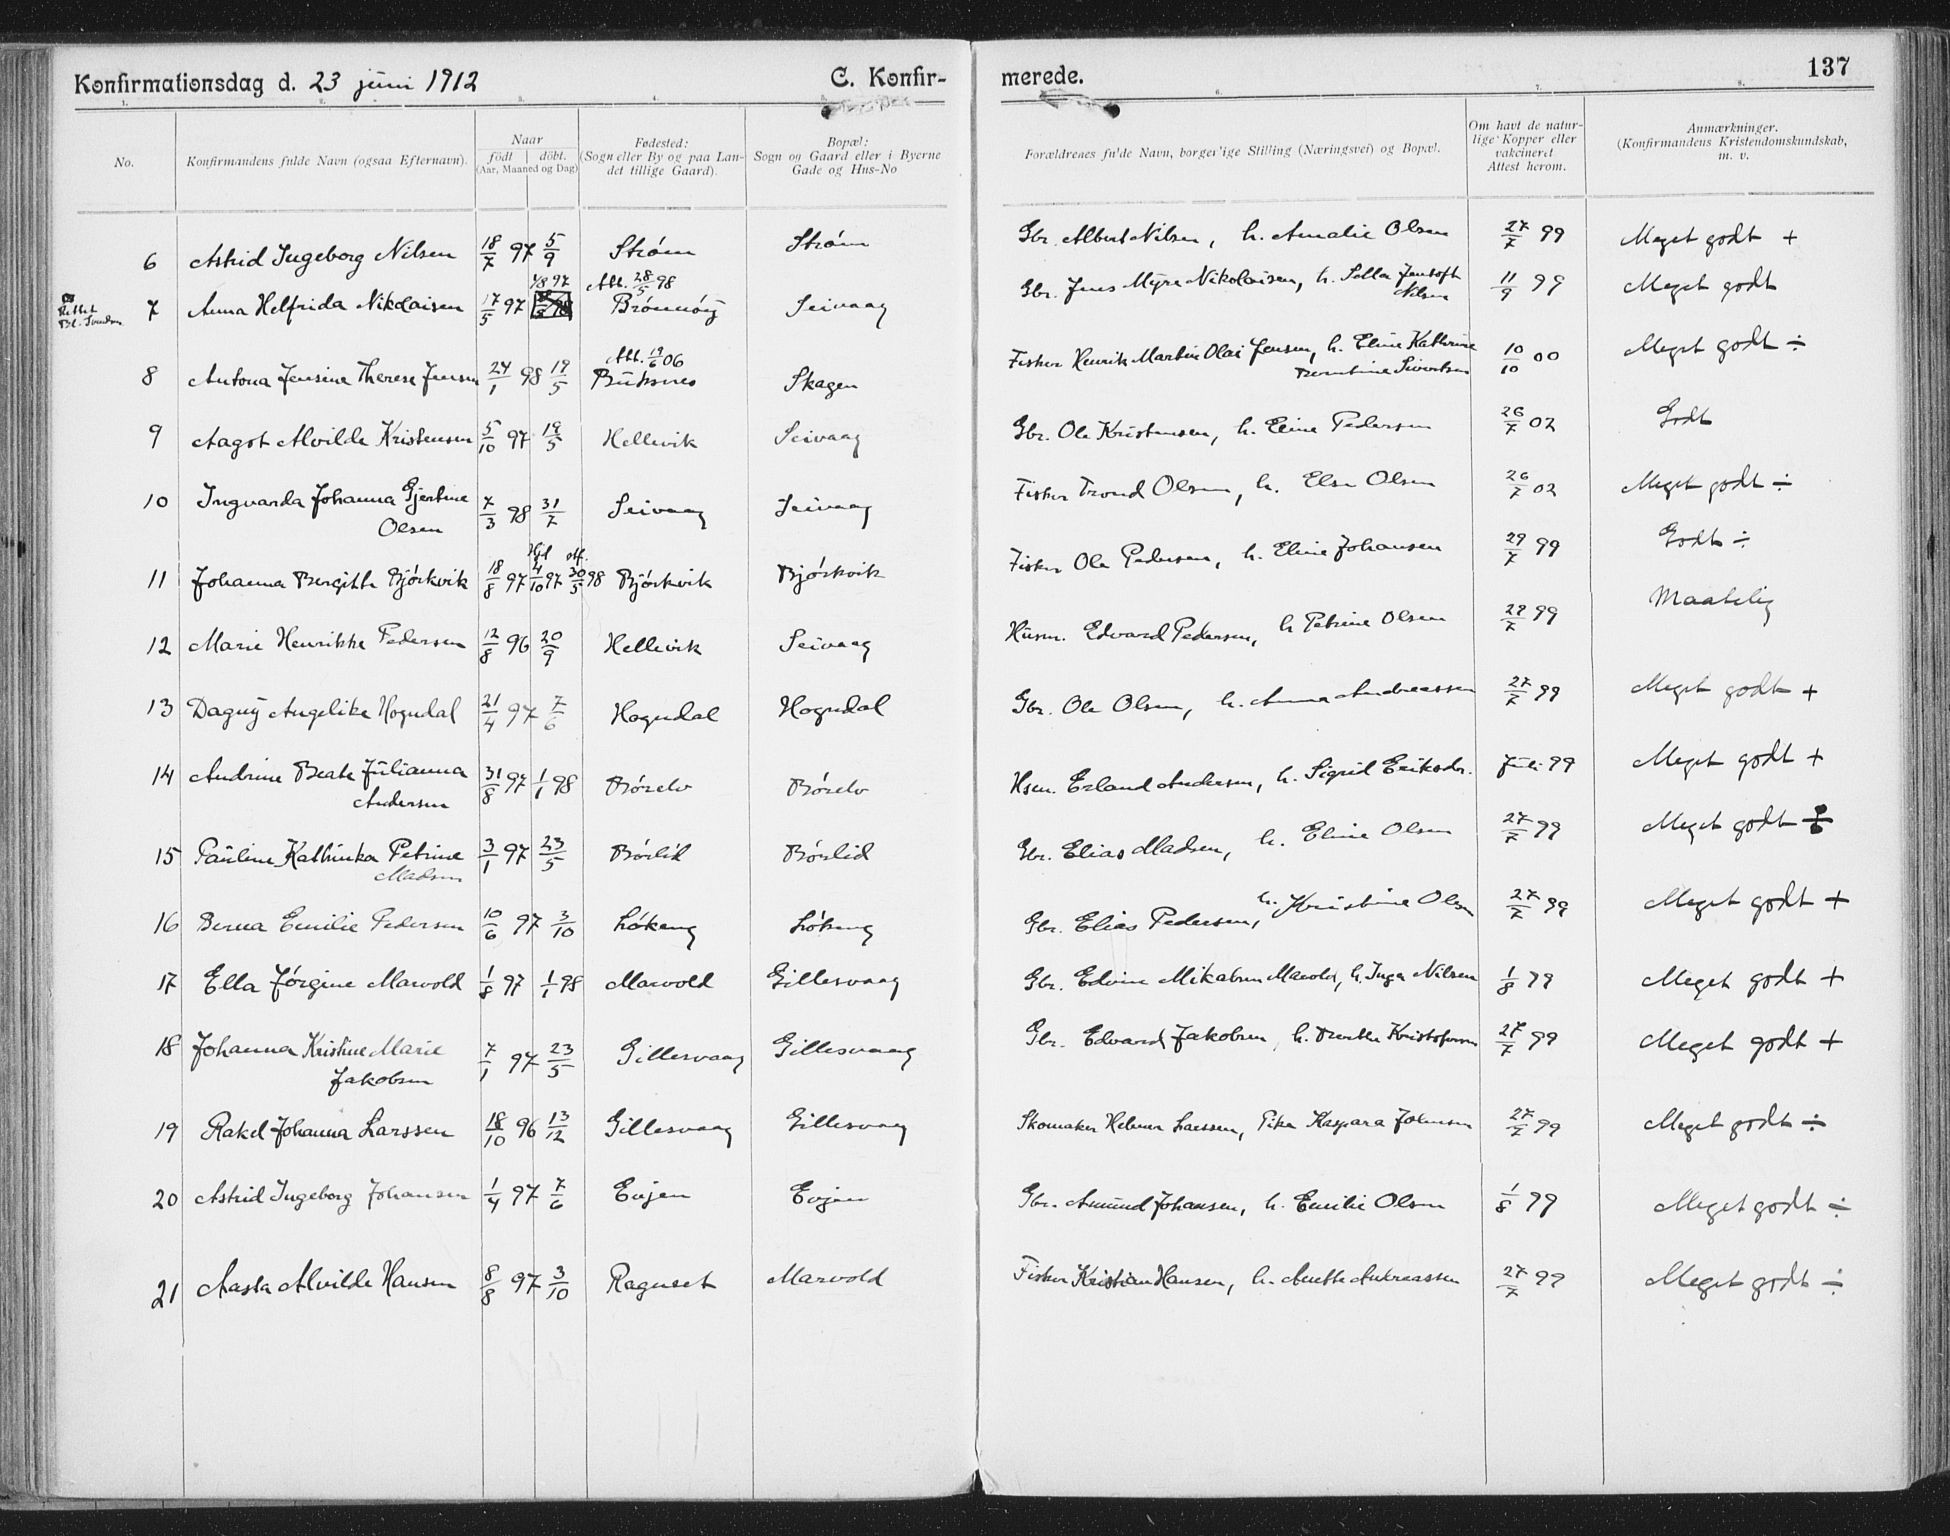 Konfirmationsdag d. 23 juni 1912 C. Konfirmerede. 137
1. 2. 3. 4. 5. 6. 7. 8.
No. Konfirmandens fulde Navn (ogsaa Efternavn). Naar født døbt. (Aar, Maaned og Dag) Fødested: (Sogn eller By og paa Landet tillige Gaard). Bopæl: Sogn og Gaard eller i Byerne Gade og Hus-No Forældrenes fulde Navn, borgerlige Stilling (Næringsvei) og Bopæl. Om havt de naturlige Kopper eller vakcineret Attest herom. Anmærkninger. (Konfirmandens Kristendomskundskab, m. v.
6 Astrid Ingeborg Nilsen 18/7 97 5/9 Strøm Strøm Gbr. Albert Nilsen, h. Amalie Olsen 27/7 99 Meget godt +
Rettet
7 Anna Helfrida Nikolaisen 17/5 97 1/8 97 Att. 28/5 98 Brønnøy Seivaag Gbr. Jens Myre Nikolaisen, h. Sella Jentoft Nilsen 11/9 99 Meget godt
8 Antona Jensine Therese Jensen 24/1 98 19/5 Att. 19/6 06 Buksnes Skagen Fisker Henrik Martin Olai Jensen, h. Eline Kathrine Sivertsen 10/10 00 Meget godt ÷
9 Aagot Alvilde Kristensen 5/10 97 19/5 Hellevik Seivaag Gbr. Ole Kristensen, h. Eline Pedersen 26/7 02 Godt
10 Ingvarda Johanna Gjertine Olsen 7/3 98 31/7 Seivaag Seivaag Fisker Trond Olsen, h. Else Olsen 26/7 02 Meget godt ÷
11 Johanna Bergitte Bjørkvik 18/8 97 Hjd 4/10 97 stf. 30/5 98 Bjørkvik Bjørkvik Fisker Ole Pedersen, h. Eline Johansen 29/7 99 Godt ÷
12 Marie Henrikke Pedersen 12/8 96 20/9 Hellevik Seivaag Husm. Edvard Pedersen, h Petrine Olsen 29/7 99 Maatelig
13 Dagny Angelike Hogndal 21/4 97 7/6 Hogndal Hogndal Gbr. Ole Olsen, h. Anna Andreassen 27/7 99 Meget godt +
14 Andrine Beate Julianna Andersen 31/8 97 1/1 98 Børelv Børelv Hsm. Erland Andersen, h. Sigrid Eriksdr. Juli 99 Meget godt +
15 Pauline Kathinka Petrine Madsen 3/1 97 23/5 Børlid Børlid Gbr. Elias Madsen, h. Eline Olsen 27/7 99 Meget godt ÷
16 Berna Emilie Pedersen 10/6 97 3/10 Løkeng Løkeng Gbr. Elias Pedersen, h. Kristine Olsen 27/7 99 Meget godt +
17 Ella Jørgine Marvold 1/8 97 1/1 98 Marvold Gillesvaag Gbr. Edvin Mikalsen Marvold, h. Inga Nilsen 1/8 99 Meget godt +
18 Johanna Kristine Marie Jakobsen 7/1 97 23/5 Gillesvaag Gillesvaag Gbr. Edvard Jakobsen, h. Dorthe Kristofersen 27/7 99 Meget godt +
19 Rakel Johanna Larssen 18/10 96 13/12 Gillesvaag Gillesvaag Skomaker Helmer Larssen, Pike Kaspara Johnsen 27/7 99 Meget godt ÷
20 Astrid Ingeborg Johansen 1/4 97 7/6 Evjen Evjen Gbr. Amund Johansen, h. Emilie Olsen 1/8 99 Meget godt ÷
21 Aasta Alvilde Hansen 8/8 97 3/10 Ragnset Marvold Fisker Kristian Hansen, h. Anette Andreassen 27/7 99 Meget godt ÷